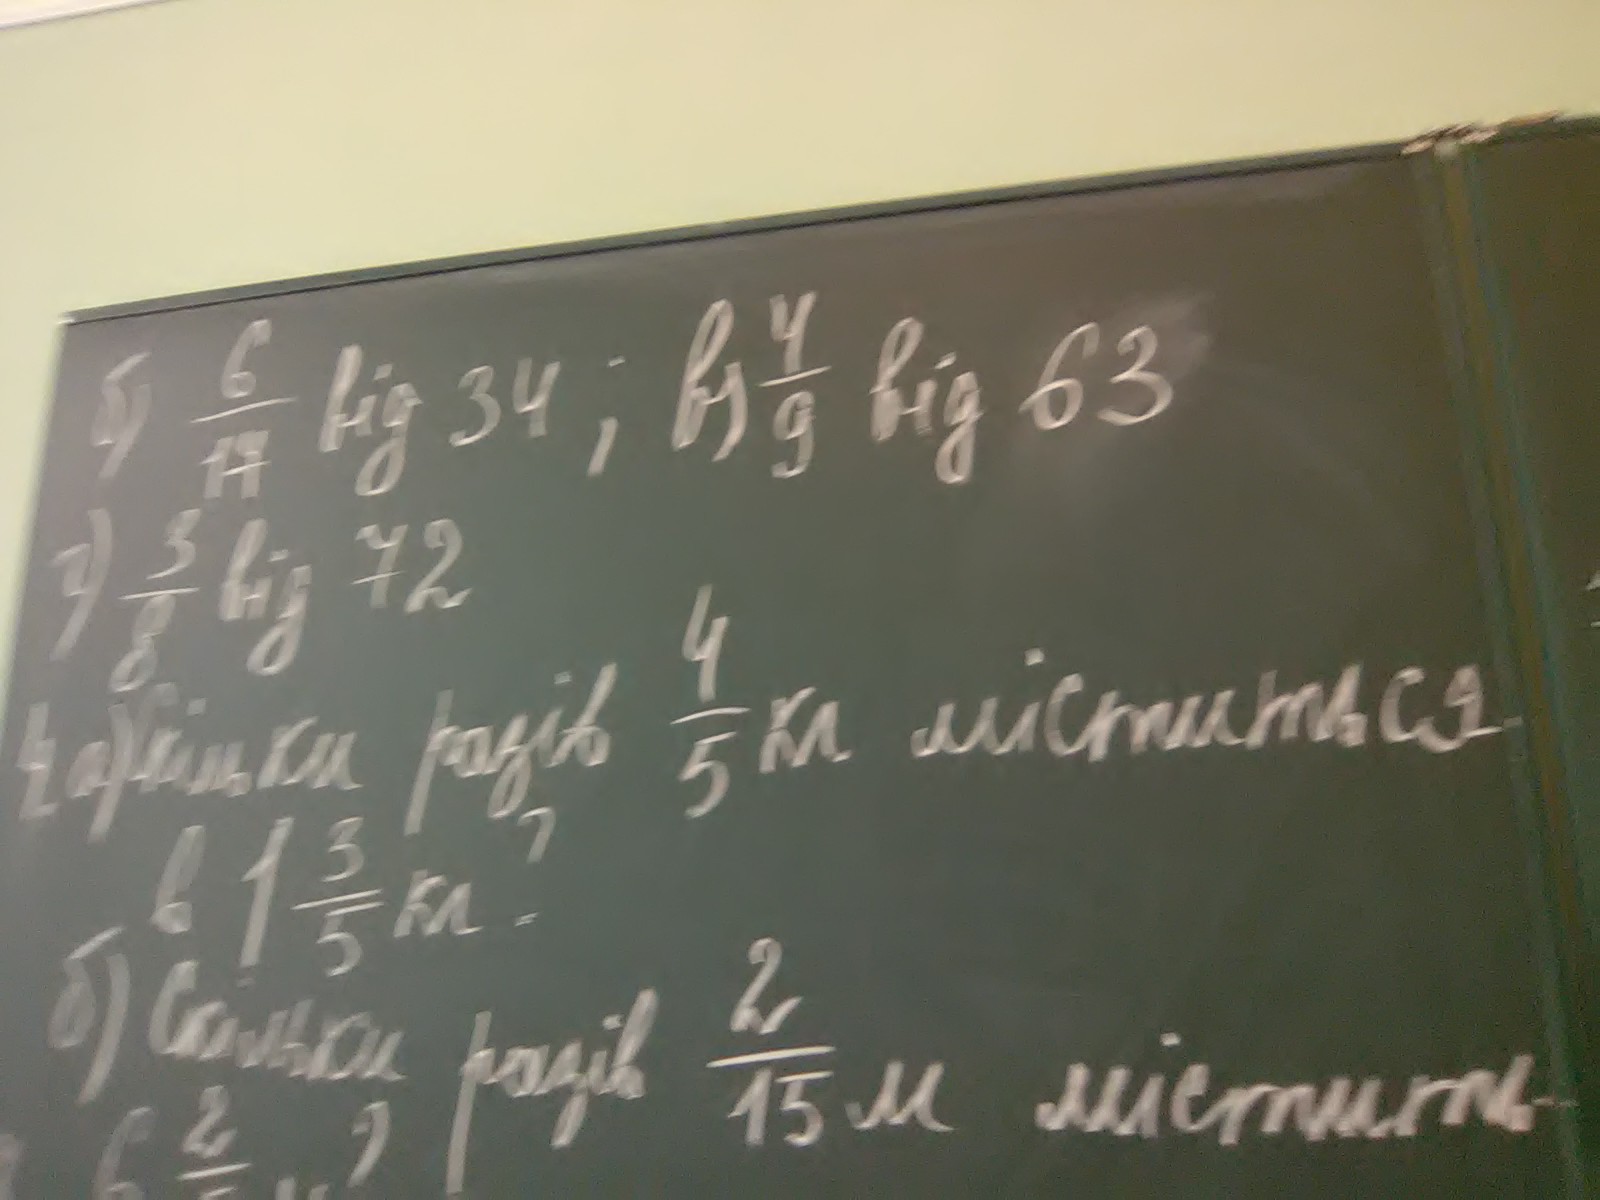 б) 6/17 від 34; в) 4/9 від 63
г) 3/8 від 72
4 а) Скільки разів 4/5 кг міститься
в 1 3/5 кг?
б) Скільки разів 2/15 м містить-
6 2/ м?